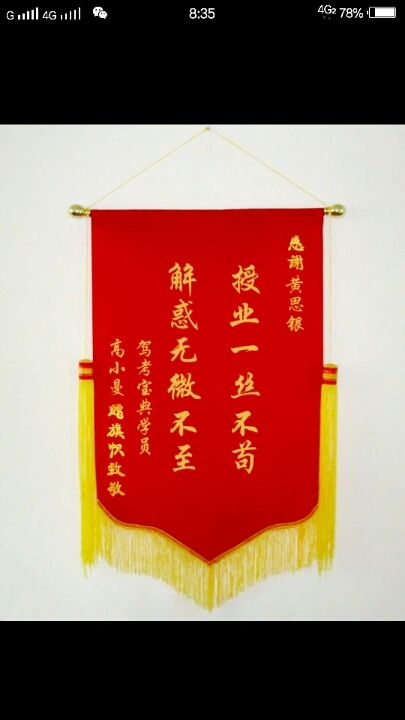 G 4G 8:35 4G2 78%
感谢黄思银
授业一丝不苟
解惑无微不至
驾考宝典学员
高小曼赠旗帜致敬